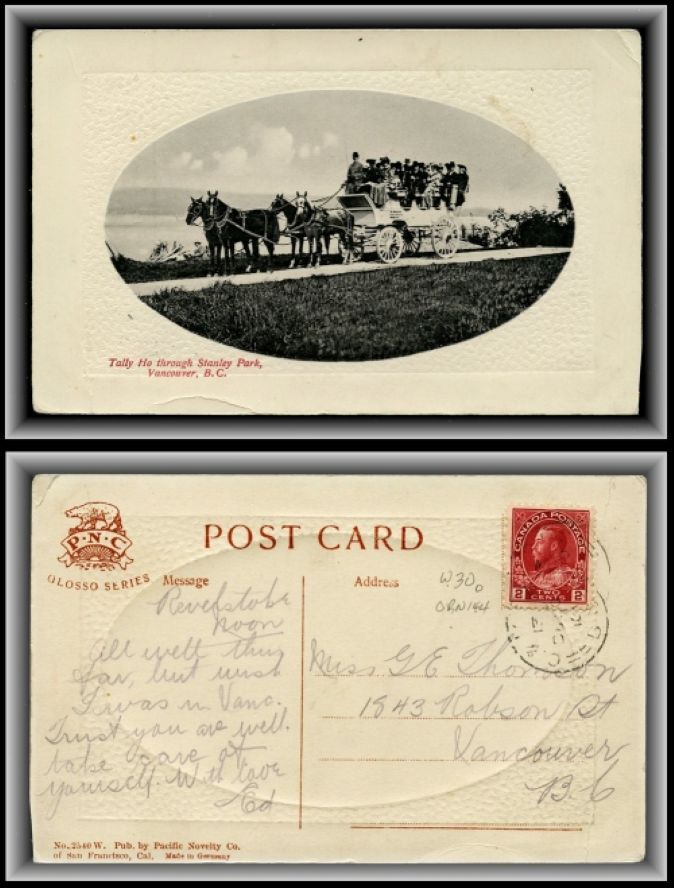 Tally Ho through Stanley Park,
Vancouver, B.C.
P·N·C
GLOSSO SERIES
POST CARD
Message
Address
W30
CANADA POSTAGE
2 TWO CENTS 2
Revelstoke
noon
All well thus
far, but wish
I was in Vanc.
Trust you are well.
take care of
yourself. With love
Ed
Miss G E Thomson
1843 Robson St
Vancouver
B.C
No. 2540 W. Pub. by Pacific Novelty Co.
of San Francisco, Cal. Made in Germany